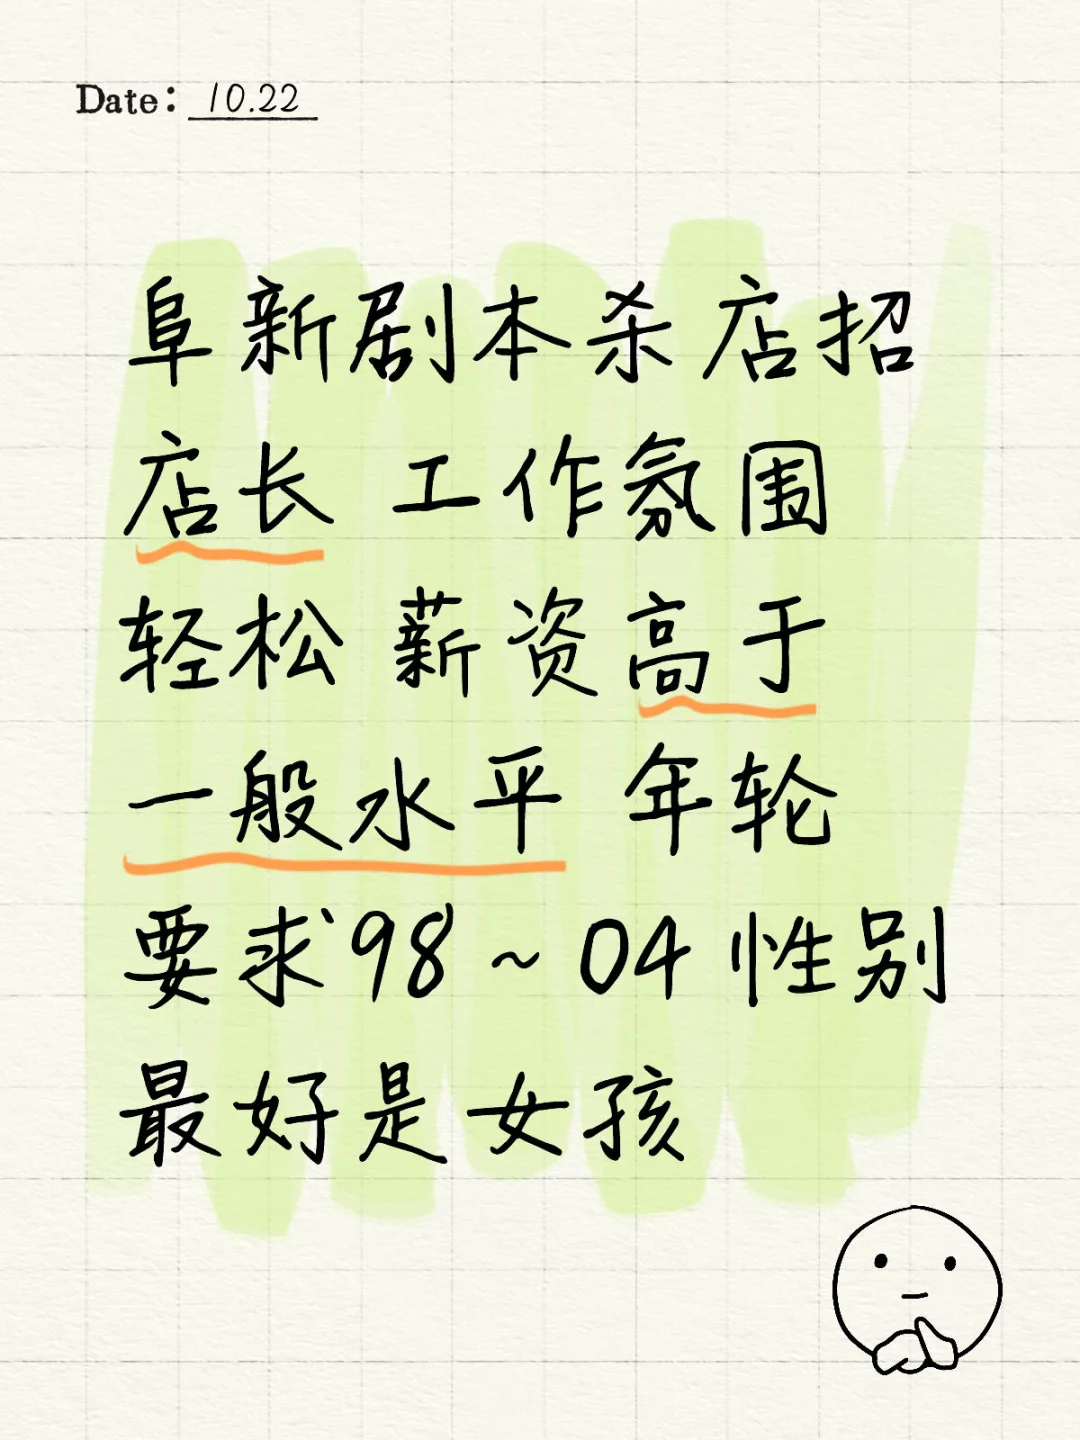 Date: 10.22
阜新剧本杀店招
店长 工作氛围
轻松 薪资高于
一般水平 年轮
要求98~04 性别
最好是女孩